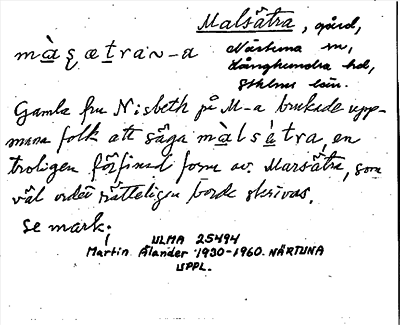 Malsätra, gård,
màsætra~-a Närtuna sn,
Långhundra hd,
Sthlms län.
Gamla fru Nisbeth på M-a brukade upp-
mana folk att säga màlsàtra, en
troligen förfinad form av Marsätra, som
väl ordet rätteligen borde skrivas.
Se mark.
ULMA 25494
Martin Ålander 1930-1960. NÄRTUNA
UPPL.